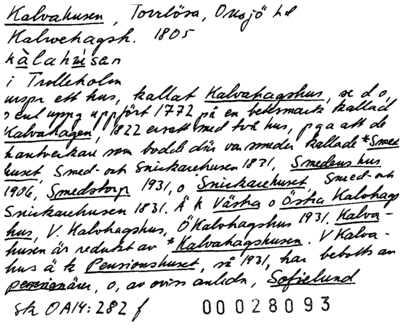 Kalvahusen, Torrlösa, Onsjö hd
Kalvehagsh. 1805
kàlahúsan
i Trolleholm
urspr ett hus, kallat Kalvahagshus, se d o,
enl uppg uppfört 1772 på en betesmark kallad
Kalvahagen, 1822 ersatt med två hus, pga att de
hantverkare som bodde där var smeder kallade *Smed-
huset Smed- och Snickarehusen 1821, Smedens hus
1906, Smedstorp 1931, o Snickarehuset Smed- och
Snickarehusen 1831. Ä k Västra o Östra Kalvhags-
hus, V. Kalvhagshus, Ö Kalvhagshus 1931. Kalva-
husen är redukt av *Kalvahagshusen. V Kalva-
hus ä k Pensionshuset, så 1931, har bebotts av
pensionärer, o, av oviss anledn, Sofielund
sk OA14:282 f
00028093